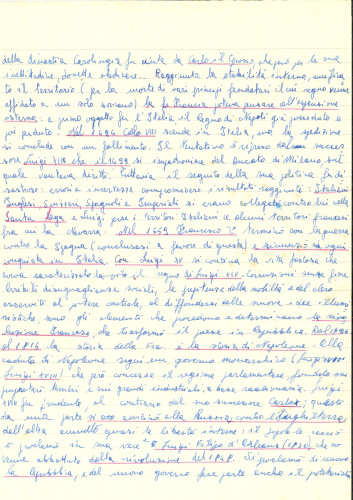 della dinastia Carolingia fu quella di Carlo il Grosso, che però per la sua
inettitudine, dovette abdicare... Raggiunta la stabilità interna, unifica
to il territorio (per la morte di vari principi feudatari il cui regno venne
affidato a un solo sovrano) la Francia poteva pensare all'espansione
esterna: e primo oggetto fu l'Italia il Regno di Napoli già posseduto e
poi perduto. Nel 1494 Carlo VIII scende in Italia, ma la spedizione
si conclude con un fallimento. Il tentativo è ripreso dal suo succes
sore Luigi XII che nel 1499 si impadronisce del Ducato di Milano, sul
quale vantava diritti. Tuttavia il seguito della sua politica fu di
sastroso: errori e incertezze compromisero i risultati raggiunti: Italiani
Inglesi, Svizzeri, Spagnoli e Imperiali si erano collegati contro lui nella
Santa Lega e Luigi perse i territori Italiani e alcuni territori francesi
fra cui la Navarra. Nel 1659 Francesco I° terminò con la guerra
contro la Spagna (conclusasi a favore di questa) e rinunziò ad ogni
conquista in Italia. Con Luigi XV si continua la vita fastosa che
aveva caratterizzato la corte e il regno di Luigi XIV. Corruzioni senza fine
terribili disuguaglianze sociali, le prepotenze della nobiltà e del clero
asservito al potere centrale, il diffondersi delle nuove idee illumi
nistiche, sono gli elementi che precedono e determinano la rivo
luzione Francese, che trasformò il paese in Repubblica. Dal 1796
al 1815 la storia della Fra. è la storia di Napoleone. Alla
caduta di Napoleone seguì un governo monarchico (
Luigi XVIII) che però concesse il regime parlamentare, fondato sui
proprietari terrieri e sui grandi industriali, a base reazionaria. Luigi
XVIII fu prudente al contrario del suo successore Carlo X; questi
da una parte si avvicinò alla Russia, contro l'Inghilterra,
dall'altra annullò quasi le libertà interne: e il popolo reagì
e proclamò in sua vece Luigi Filippo d'Orleans (1830), che
venne abbattuto dalla rivoluzione del 1848. Si proclamò di nuovo
la Repubblica, e del nuovo governo fece parte anche il proletariato